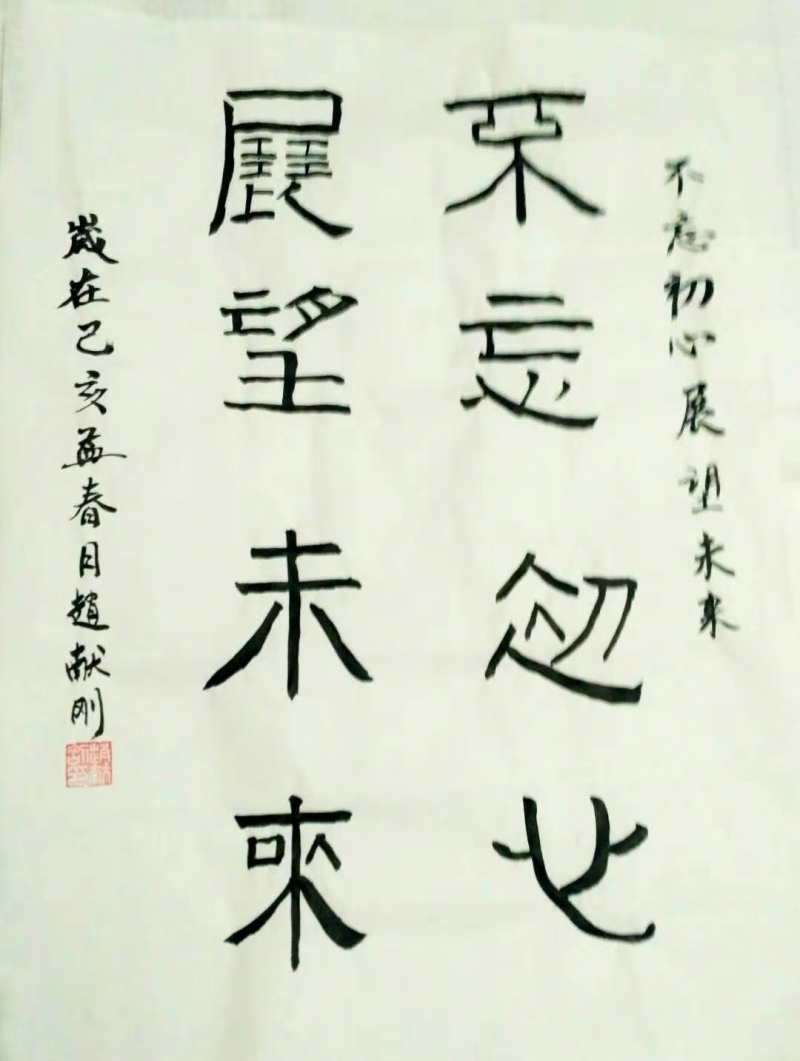 不忘初心展望未来
不忘初心
展望未來
歲在己亥孟春月趙献刚